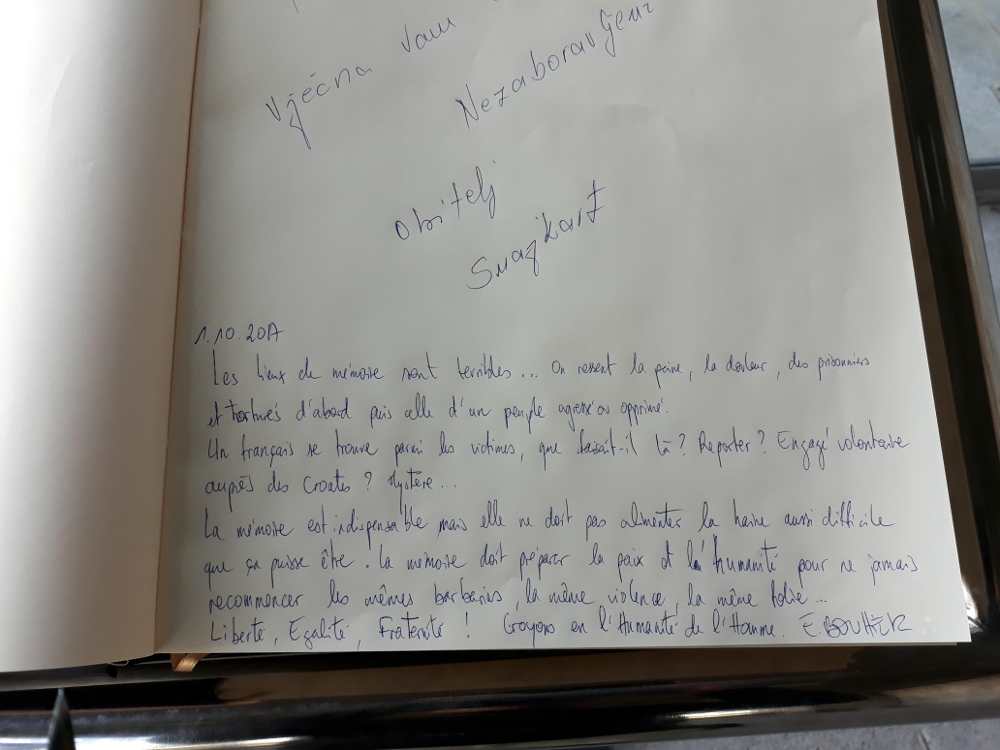 Vječna Vam
Nezaboravljeni
Obitelj
1.10.2017
Les lieux de mémoire sont terribles... On ressent la peine, la douleur, des prisonniers
et torturés d'abord puis celle d'un peuple agressé ou opprimé.
Un français se trouve parmi les victimes, que faisait-il là ? Reporter ? Engagé volontaire
auprès des Croates ? Mystère...
La mémoire est indispensable mais elle ne doit pas alimenter la haine aussi difficile
que ça puisse être. La mémoire doit préparer la paix et l'humanité pour ne jamais
recommencer les mêmes barbaries, la même violence, la même folie...
Liberté, Egalité, Fraternité ! Croyons en l'Humanité de l'Homme. E.